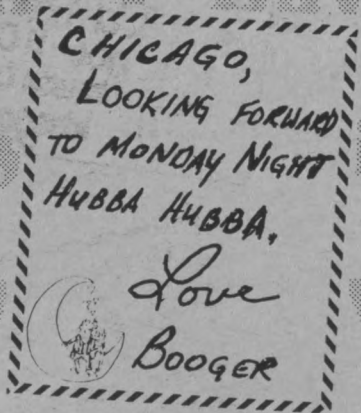 CHICAGO,
LOOKING FORWARD
TO MONDAY NIGHT
HUBBA HUBBA.
Love
BOOGER